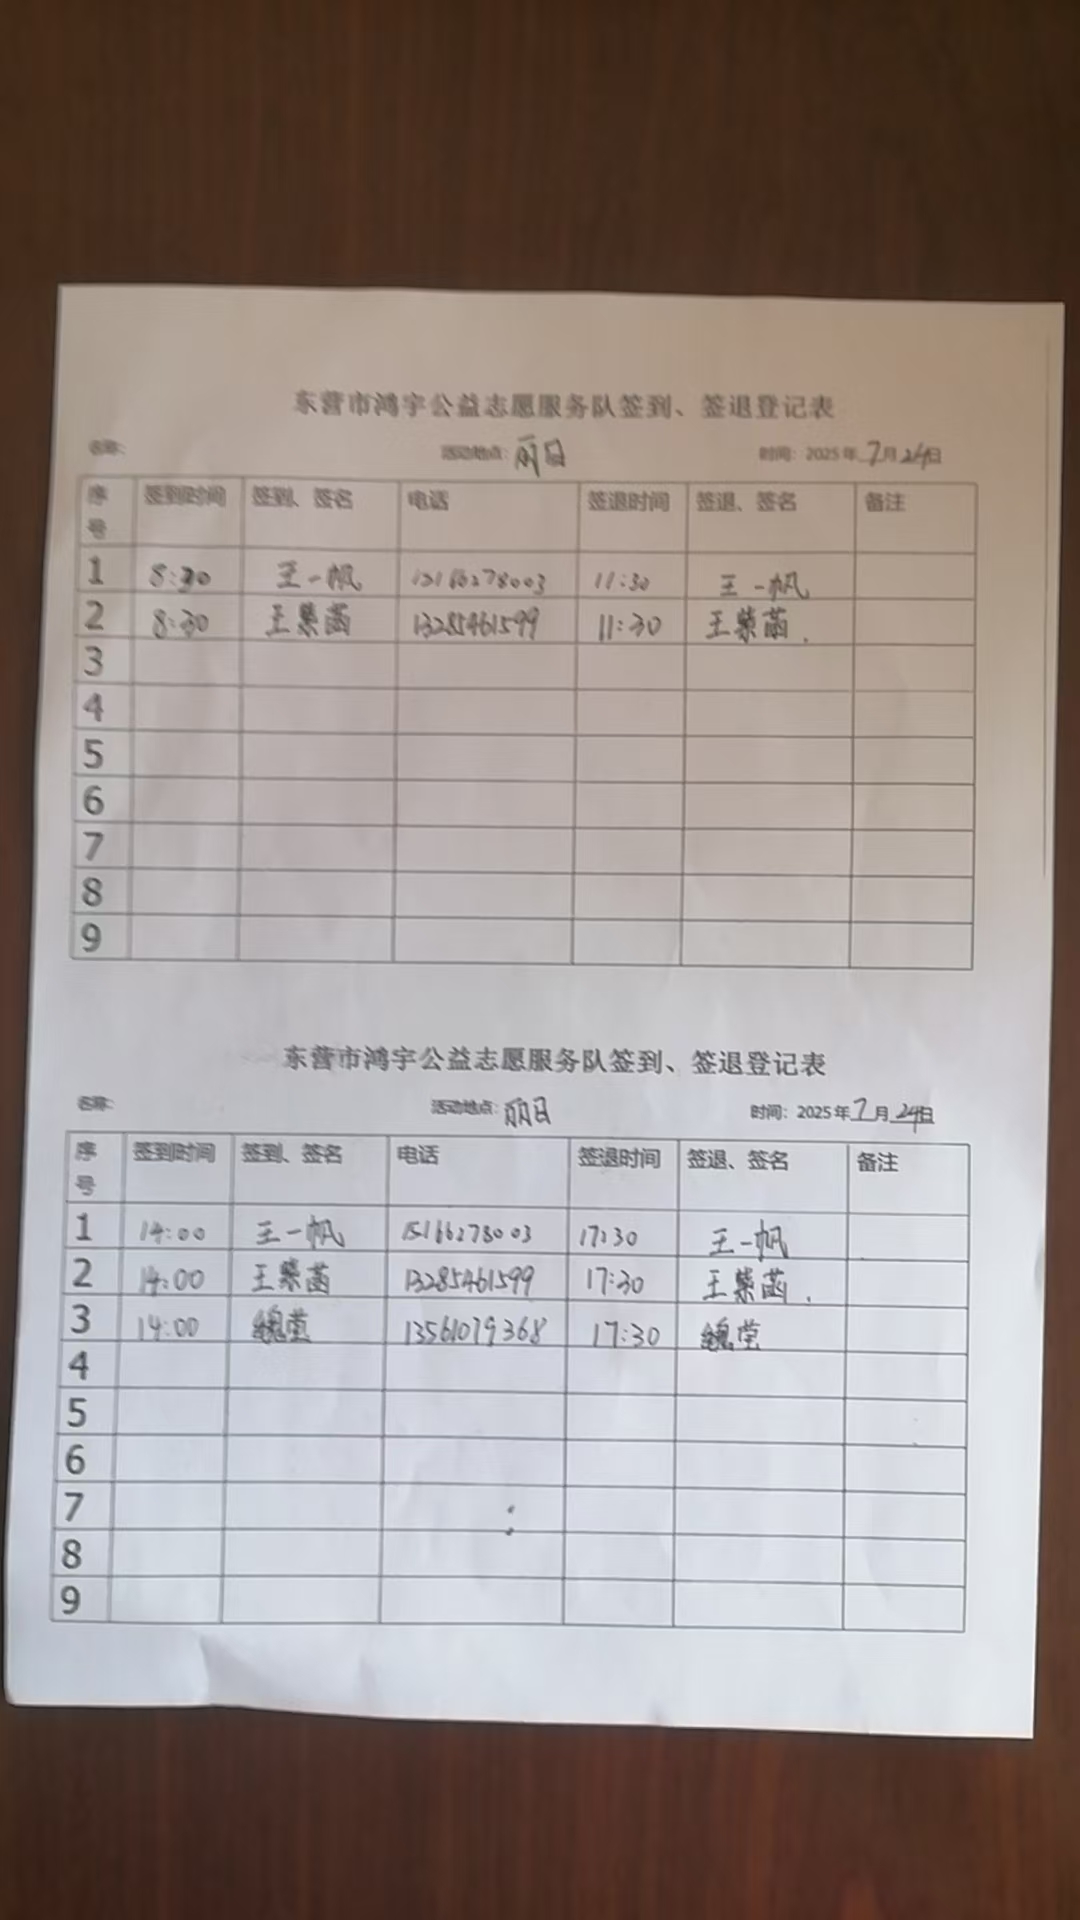 东营市鸿宇公益志愿服务队签到、签退登记表
名称： 活动地点：丽日 时间：2025年7月24日
序号 签到时间 签到、签名 电话 签退时间 签退、签名 备注
1 8:30 王一帆 15166278003 11:30 王一帆
2 8:30 王紫菡 13285461599 11:30 王紫菡.
3
4
5
6
7
8
9
东营市鸿宇公益志愿服务队签到、签退登记表
名称： 活动地点：丽日 时间：2025年7月24日
序号 签到时间 签到、签名 电话 签退时间 签退、签名 备注
1 14:00 王一帆 15166278003 17:30 王一帆
2 14:00 王紫菡 13285461599 17:30 王紫菡.
3 14:00 13561079368 17:30
4
5
6
7
8
9